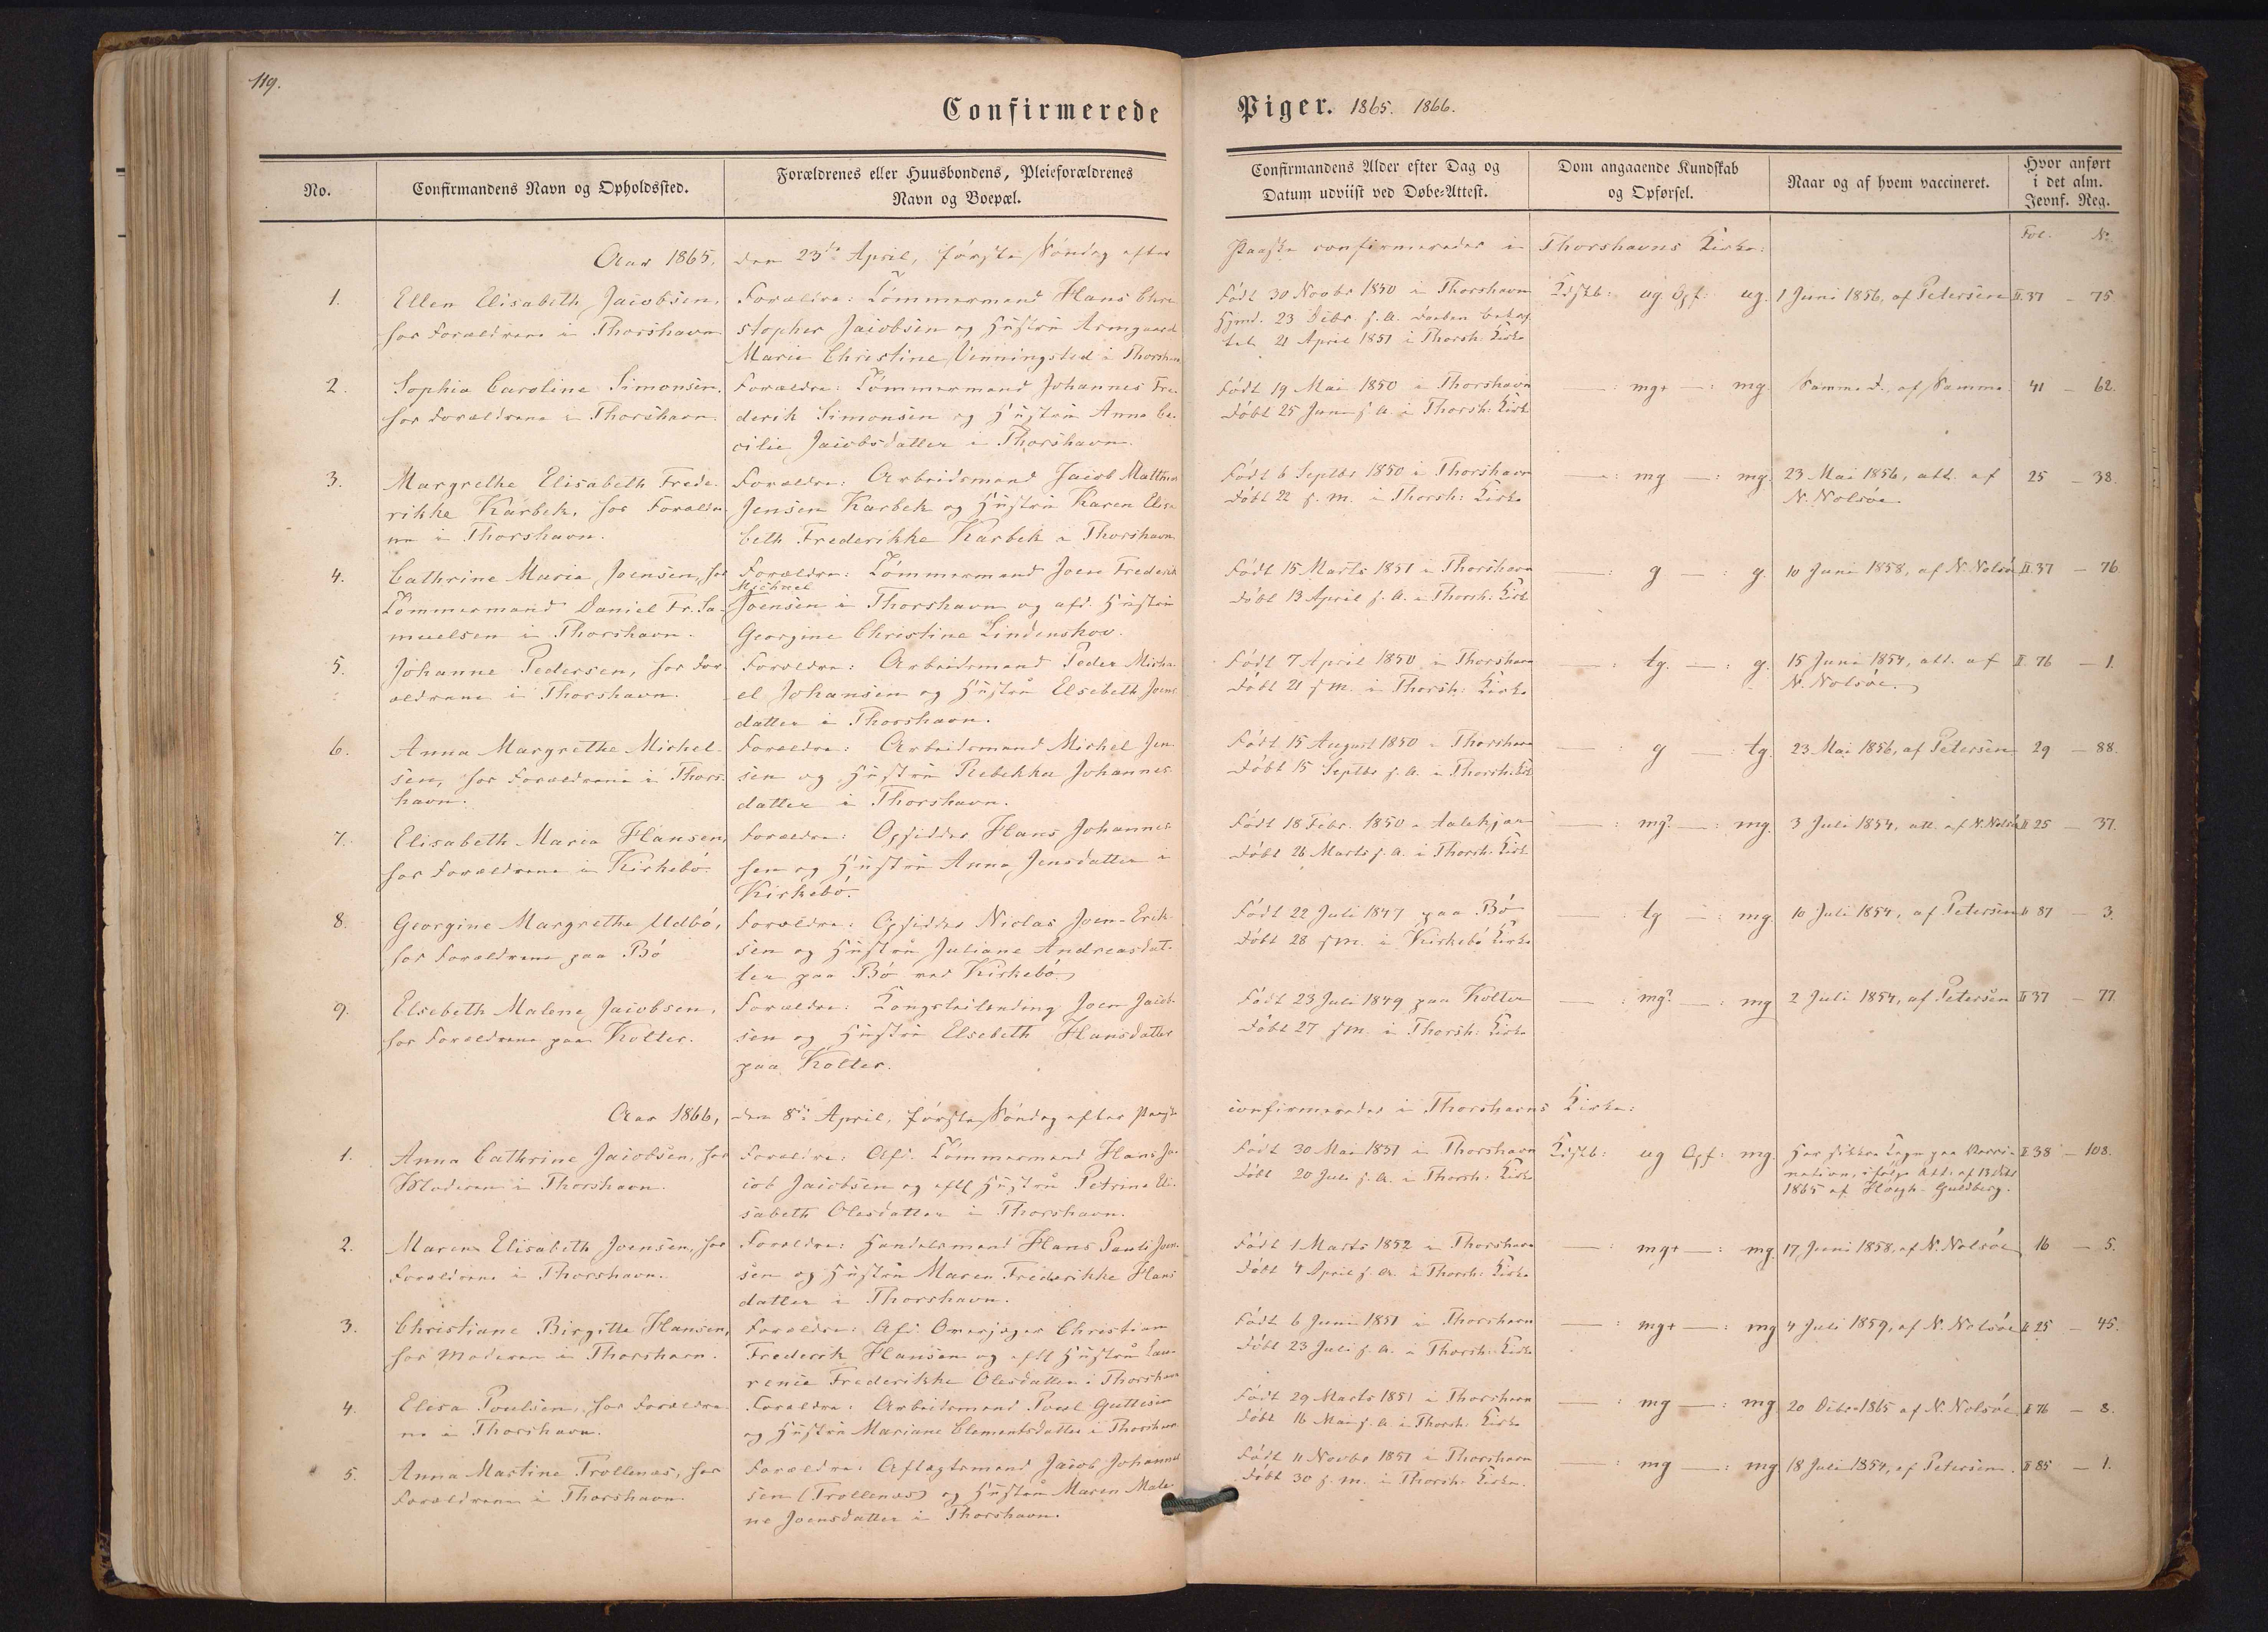 119.
Confirmerede
Piger. 1865. 1866.
No.
Confirmandens Navn og Opholdssted.
Forældrenes eller Huusbondens, Pleieforældrenes
Navn og Boepæl.
Confirmandens Alder efter Dag og
Datum udviist ved Døbe-Attest.
Dom angaaende Kundskab
og Opførsel.
Naar og af hvem vaccineret.
Hvor anført
i det alm.
Jevnf. Reg.
Fol. No.
Aar 1865, den 23de April, første Søndag efter Paaske confirmeredes i Thorshavns Kirke:
1.
Ellen Elisabeth Jacobsen,
hos Forældrene i Thorshavn
Forældre: Tømmermand Hans Chri
stopher Jacobsen og Hustru Armgaard
Marie Christine Venningsted i Thorshavn
Født 30 Novbr 1850 i Thorshavn
Hjmd. 23 Debr s. A. Daaben
21 April 1851 i Thorsh: Kirke
Kdskb: ug Opf: ug.
1 Juni 1856, af Petersen
II. 37 - 75
2.
Sophia Caroline Simonsen,
hos Forældrene i Thorshavn.
Forældre: Tømmermand Johannes Fre-
derik Simonsen og Hustru Anna Ce-
cilie Jacobsdatter i Thorshavn.
Født 19 Mai 1850 i Thorshavn
Døbt 25 Juni s. A. i Thorsh: Kirke
— : mg+ — : mg.
Samme D., af Samme
41 - 62.
3.
Margrethe Elisabeth Frede-
rikke Karbek, hos Forældre
ne i Thorshavn.
Forældre: Arbeidsmand Jacob Matthias
Jensen Karbek og Hustru Karen Elisa
beth Frederikke Karbek i Thorshavn
Født 6 Septbr 1850 i Thorshavn
Døbt 22 s. M. i Thorsh: Kirke
— : mg — : mg.
23 Mai 1856, att. af
N. Nolsøe
25 - 38.
4.
Cathrine Maria Joensen, hos
Tømmermand Daniel Fr. Sa-
muelsen i Thorshavn.
Forældre: Tømmermand Joen Frederik
Michael
Joensen i Thorshavn og afd. Hustru
Georgine Christine Lindenskov.
Født 15 Marts 1851 i Thorshavn
Døbt 13 April s. A. i Thorsh: Kirk
— : g — : g.
10 Juni 1858, af N. Nolsøe
II. 37 - 76
5.
Johanne Pedersen, hos For-
ældrene i Thorshavn.
Forældre: Arbeidsmand Peder Micha-
el Johansen og Hustru Elsebeth Joens
datter i Thorshavn.
Født 7 April 1850 i Thorshavn
Døbt 21 s. M. i Thorsh: Kirke
— : tg. — : g.
15 Juni 1854, att. af
N. Nolsøe.
II. 76 - 1.
6.
Anna Margrethe Michel-
sen, hos Forældrene i Thors-
havn.
Forældre: Arbeidsmand Michel Jen-
sen og Hustru Rebekka Johannes
datter i Thorshavn.
Født 15 August 1850 i Thorshavn
Døbt 15 Septbr s. A. i Thorsh: Kirk
— : g — : tg.
23 Mai 1856, af Petersen
29 - 88.
7.
Elisabeth Maria Hansen,
hos Forældrene i Kirkebø.
Forældre: Opsidder Hans Johannes
sen og Hustru Anna Jensdatter i
Kirkebø.
Født 18 Febr. 1850 i
Døbt 26 Marts s. A. i Thorsh: Kirk
— : mg? — : mg.
3 Juli 1854, att. af N. Nolsøe
II 25 - 37.
8.
Georgine Margrethe Udbø,
hos Forældrene paa Bø
Forældre: Opsidder Niclas Joen-Erik-
sen og Hustru Juliane Andreasdat-
ter paa Bø ved Kirkebø.
Født 22 Juli 1847 paa Bø
Døbt 28 s. M. i Kirkebø Kirke
— : tg — : mg.
10 Juli 1854, af Petersen
II 87 - 3.
9.
Elsebeth Malene Jacobsen,
hos Forældrene paa Kolter.
Forældre: Kongsleilending Joen Jacob-
sen og Hustru Elsebeth Hansdatter
paa Kolter.
Født 23 Juli 1849 paa Kolter
Døbt 27 s. M. i Thorsh: Kirke
— : mg? — : mg
2 Juli 1854, af Petersen
II 37 - 77.
Aar 1866, den 8de April, første Søndag efter Paaske confirmeredes i Thorshavns Kirke:
1.
Anna Cathrine Jacobsen, hos
Moderen i Thorshavn.
Forældre: Afd. Tømmermand Hans Ja-
cob Jacobsen og eftl. Hustru Petrine Eli-
sabeth Olesdatter i Thorshavn.
Født 30 Mai 1851 i Thorshavn
Døbt 20 Juli s. A. i Thorsh: Kirke
Kdskb: ug Opf: mg.
Har sikkre Tegn paa Vacci-
nation, ifølge Att. af 13
1865 af Høegh-Guldberg.
II 38 - 108.
2.
Maren Elisabeth Joensen, hos
Forældrene i Thorshavn.
Forældre: Handelsmand Hans Pauli Joen-
sen og Hustru Maren Frederikke Hans
datter i Thorshavn.
Født 1 Marts 1852 i Thorshavn
Døbt 4 April s. A. i Thorsh: Kirke
— : mg+ — : mg.
17 Juni 1858, af N. Nolsøe
16 - 5.
3.
Christiane Birgitte Hansen,
hos Moderen i Thorshavn.
Forældre: Afd. Overjæger Christian
Frederik Hansen og eftl Hustru Lau-
rence Frederikke Olesdatter i Thorshavn
Født 6 Juni 1851 i Thorshavn
Døbt 23 Juli s. A. i Thorsh: Kirke
— : mg+ — : mg
4 Juli 1859, af N. Nolsøe
II 25 - 45.
4.
Elisa Poulsen, hos Forældre-
ne i Thorshavn.
Forældre: Arbeidsmand Poul Guttesen
og Hustru Mariane Clementsdatter i Thorshavn
Født 29 Marts 1851 i Thorshavn
Døbt 16 Mai s. A. i Thorsh: Kirke
— : mg — : mg.
20 Debr 1865 af N. Nolsøe.
II 76 - 8.
5.
Anna Martine Trollenæs, hos
Forældrene i Thorshavn
Forældre: Aftægtsmand Jacob Johannes
sen (Trollenæs) og Hustru Maren Male-
ne Joensdatter i Thorshavn.
Født 11 Novbr 1851 i Thorshavn
Døbt 30 s. M. i Thorsh: Kirke.
— : mg — : mg
18 Juli 1854, af Petersen.
II 85 - 1.